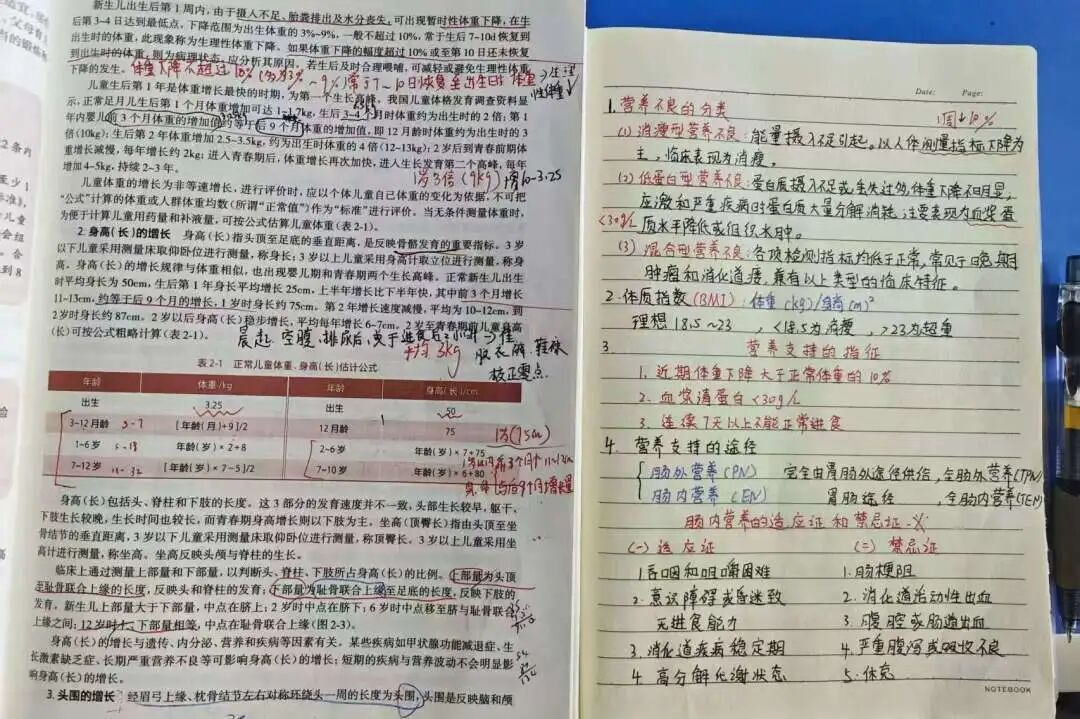 新生儿出生后第1周内,由于摄入不足、胎粪排出及水分丧失,可出现暂时性体重下降,在生
后第3~4日达到最低点,下降范围为出生体重的3%~9%,一般不超过10%,常于生后7~10d恢复到
出生时的体重,此现象称为生理性体重下降。如果体重下降的幅度超过10%或至第10日还未恢复
到出生时的体重,则为病理状态,应分析其原因。若生后及时合理喂哺,可减轻或避免生理性体重
下降的发生。
体重下降不超过10%(多为3%~9%)常于7~10日恢复至出生时体重
儿童生后第1年是体重增长最快的时期,为第一个生长高峰。我国儿童体格发育调查资料显
示,正常足月儿生后第1个月体重增加可达1~1.7kg,生后3~4个月时体重约为出生时的2倍;第1
年内婴儿前3个月体重的增加值约等于后9个月体重的增加值,即12月龄时体重约为出生时的3
倍(10kg);生后第2年体重增加2.5~3.5kg,约为出生时体重的4倍(12~13kg);2岁后到青春前期体
重增长减慢,每年增长约2kg;进入青春期后,体重增长再次加快,进入生长发育第二个高峰,每年
增加4~5kg,持续2~3年。
1岁3倍(9kg)
儿童体重的增长为非等速增长,进行评价时,应以个体儿童自己体重的变化为依据,不可把
“公式”计算的体重或人群体重均数(所谓“正常值”)作为“标准”进行评价。当无条件测量体重时,
为便于计算儿童用药量和补液量,可按公式估算儿童体重(表2-1)。
2. 身高(长)的增长 身高(长)指头顶至足底的垂直距离,是反映骨骼发育的重要指标。3岁
以下儿童采用测量床取仰卧位进行测量,称身长;3岁以上儿童采用身高计取立位进行测量,称身
高。身高(长)的增长规律与体重相似,也出现婴儿期和青春期两个生长高峰。正常新生儿出生
时平均身长为50cm,生后第1年身长平均增长25cm,上半年增长比下半年快,其中前3个月增长
11~13cm,约等于后9个月的增长,1岁时身长约75cm。第2年增长速度减慢,平均为10~12cm,到
2岁时身长约87cm。2岁以后身高(长)稳步增长,平均每年增长6~7cm。2岁至青春期前儿童身高
(长)可按公式粗略计算(表2-1)。
晨起、空腹、排尿后、
平均3kg
脱衣裤、鞋袜
校正零点
表2-1 正常儿童体重、身高(长)估计公式
年龄 体重/kg 年龄 身高(长)/cm
出生 3.25 出生 50
3~12月龄 [年龄(月)+9]/2 12月龄 75
1~6岁 年龄(岁)×2+8 2~6岁 年龄(岁)×7+75
7~12岁 [年龄(岁)×7-5]/2 7~10岁 年龄(岁)×6+80
1岁(75cm)
身高(长)包括头、脊柱和下肢的长度。这3部分的发育速度并不一致,头部生长较早,躯干、
下肢生长较晚,生长时间也较长,而青春期身高增长则以下肢为主。坐高(顶臀长)指由头顶至坐
骨结节的垂直距离,3岁以下儿童采用测量床取仰卧位进行测量,称顶臀长。3岁以上儿童采用坐
高计进行测量,称坐高。坐高反映头颅与脊柱的生长。
临床上通过测量上部量和下部量,以判断头、脊柱、下肢所占身高(长)的比例。上部量为头顶
至耻骨联合上缘的长度,反映头和脊柱的发育;下部量为耻骨联合上缘至足底的长度,反映下肢的
发育。新生儿上部量大于下部量,中点在脐上;2岁时中点在脐下;6岁时中点移至脐与耻骨联合
上缘之间;12岁时上、下部量相等,中点在耻骨联合上缘(图2-3)。
身高(长)的增长与遗传、内分泌、营养和疾病等因素有关。某些疾病如甲状腺功能减退症、生
长激素缺乏症、长期严重营养不良等可影响身高(长)的增长;短期的疾病与营养波动不会明显影
响身高(长)的增长。
3. 头围的增长 经眉弓上缘、枕骨结节左右对称环绕头一周的长度为头围,头围是反映脑和颅
Date: Page:
1. 营养不良的分类
1周↓10%
(1) 消瘦型营养不良:能量摄入不足引起。以人体测量指标下降为
主,临床表现为消瘦。
(2) 低蛋白型营养不良:蛋白质摄入不足或丢失过多,体重下降不明显,
应激和严重疾病时蛋白质大量分解消耗,主要表现为血浆蛋
<30g/L 质水平降低或组织水肿。
(3) 混合型营养不良:各项检测指标均低于正常,常见于晚期
肿瘤和消化道瘘,兼有以上类型的临床特征。
2. 体质指数(BMI):体重(kg)/身高(m)²
理想18.5~23 , <18.5为消瘦 , >23为超重
3. 营养支持的指征
1. 近期体重下降大于正常体重的10%
2. 血浆清蛋白<30g/L
3. 连续7天以上不能正常进食
4. 营养支持的途径
肠外营养(PN) 完全由胃肠外途径供给,全肠外营养(TPN)
肠内营养(EN) 胃肠途径 全肠内营养(TEN)
肠内营养的适应证和禁忌证
(一) 适应证 (二) 禁忌证
1. 吞咽和咀嚼困难 1. 肠梗阻
2. 意识障碍或昏迷致 2. 消化道活动性出血
无进食能力 3. 腹腔或肠道出血
3. 消化道疾病稳定期 4. 严重腹泻或吸收不良
4. 高分解代谢状态 5. 休克
NOTEBOOK